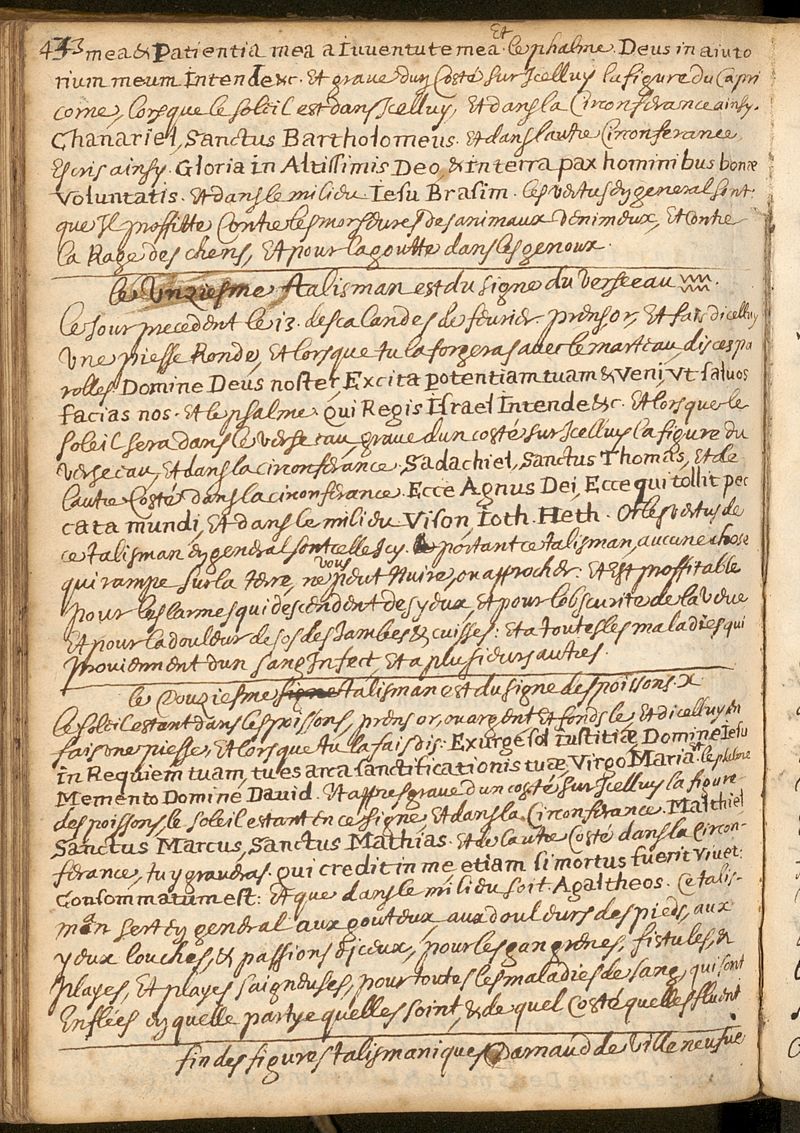 433 mea & Patientia mea a Iuventute mea. Et le phalme. Deus in aiuto
rium meum Intende &c. Et grave dun Costé sur Icelluy la figure du Capri
corne, lorsque le soleil est dans Icelluy, Et dans la Circonferance ainsy.
Chanariel, Sanctus Bartholomeus. Et dans lautre Circonferance,
Escris ainsy. Gloria in Altissimis Deo, & in terra pax hominibus bonæ
voluntatis. Et dans le milieu Iesu Brasim. les vertus en general sont
que Il proffitte Contre les morseures des animaux venimeux, Et Contre
la Rage des chens, Et pour la goutte dans les genoux.
le Vnziesme Talisman est du signe du Verseeau ♒.
le Iour precedent le 13. des calandes de fevrier. prens or, Et fais dicelluy
Vne piesse Ronde, Et lorsque tu la forgeras avec le marteau, dis ces pa
rolles Domine Deus noster, Excita potentiam tuam & veni, Vt salvos
facias nos. Et le psalme. qui Regis Israel Intende &c. Et lorsque le
soleil sera dans le verseeau, grave dun costé sur Icelluy la figure du
verseeau, Et dans la circonferance. Sadachiel, Sanctus Thomas, Et de
lautre Costé dans la circonferance. Ecce Agnus Dei, Ecce qui tollit pec
cata mundi, Et dans le milieu Vison, Ioth. Heth. Or les vertus de
ce talisman en general sont celle Icy. portant ce talisman, aucune chose
qui rampe sur la terre, ne vous peut Nuire, ou approcher. Et Est proffitable
pour les larmes qui descendent des yeux, Et pour lobscurite de la veue
Et pour la douleur de os des Iambes & cuisses: Et a toutes les maladies qui
proviennent dun sang Infect, Et a plusieurs autres.
le Douziesme signe talisman est du signe des poissons. ♓
le soleil estant dans les poissons, prens or, ou argent Et fonds le, Et dicelluy en
fais une piesse, Et lorsque tu la fais dis. Exurge sol iustitiæ, Domine Iesu
in Requiem tuam, tu es arca sanctificationis tuæ, Virgo Maria. le phalme
Memento Domine David. Et appres grave dun costé sur Icelluy la figure
des poissons, le soleil estant en ce signe Et dans la Circonferance. Malthiel
Sanctus Marcus, Sanctus Mathias. Et de lautre Costé dans la Circon-
ferance, tu y graveras. qui credit in me, etiam si mortus fuerit vivet:
Consommatum est: Et que dans le milieu soit. Agaltheos. Ce talis-
man sert en general aux gouteux, aux douleurs des pieds, aux
yeux louches, & passions diceux, pour les gangrenes, fistules, &
playes, Et playes saigneuses, pour toutes les maladies de sang, qui sont
Enflées en quelle partye quelles soint, & de quel Costé quelles fluent
fin des figures talismaniques Darnaud de Villeneufve